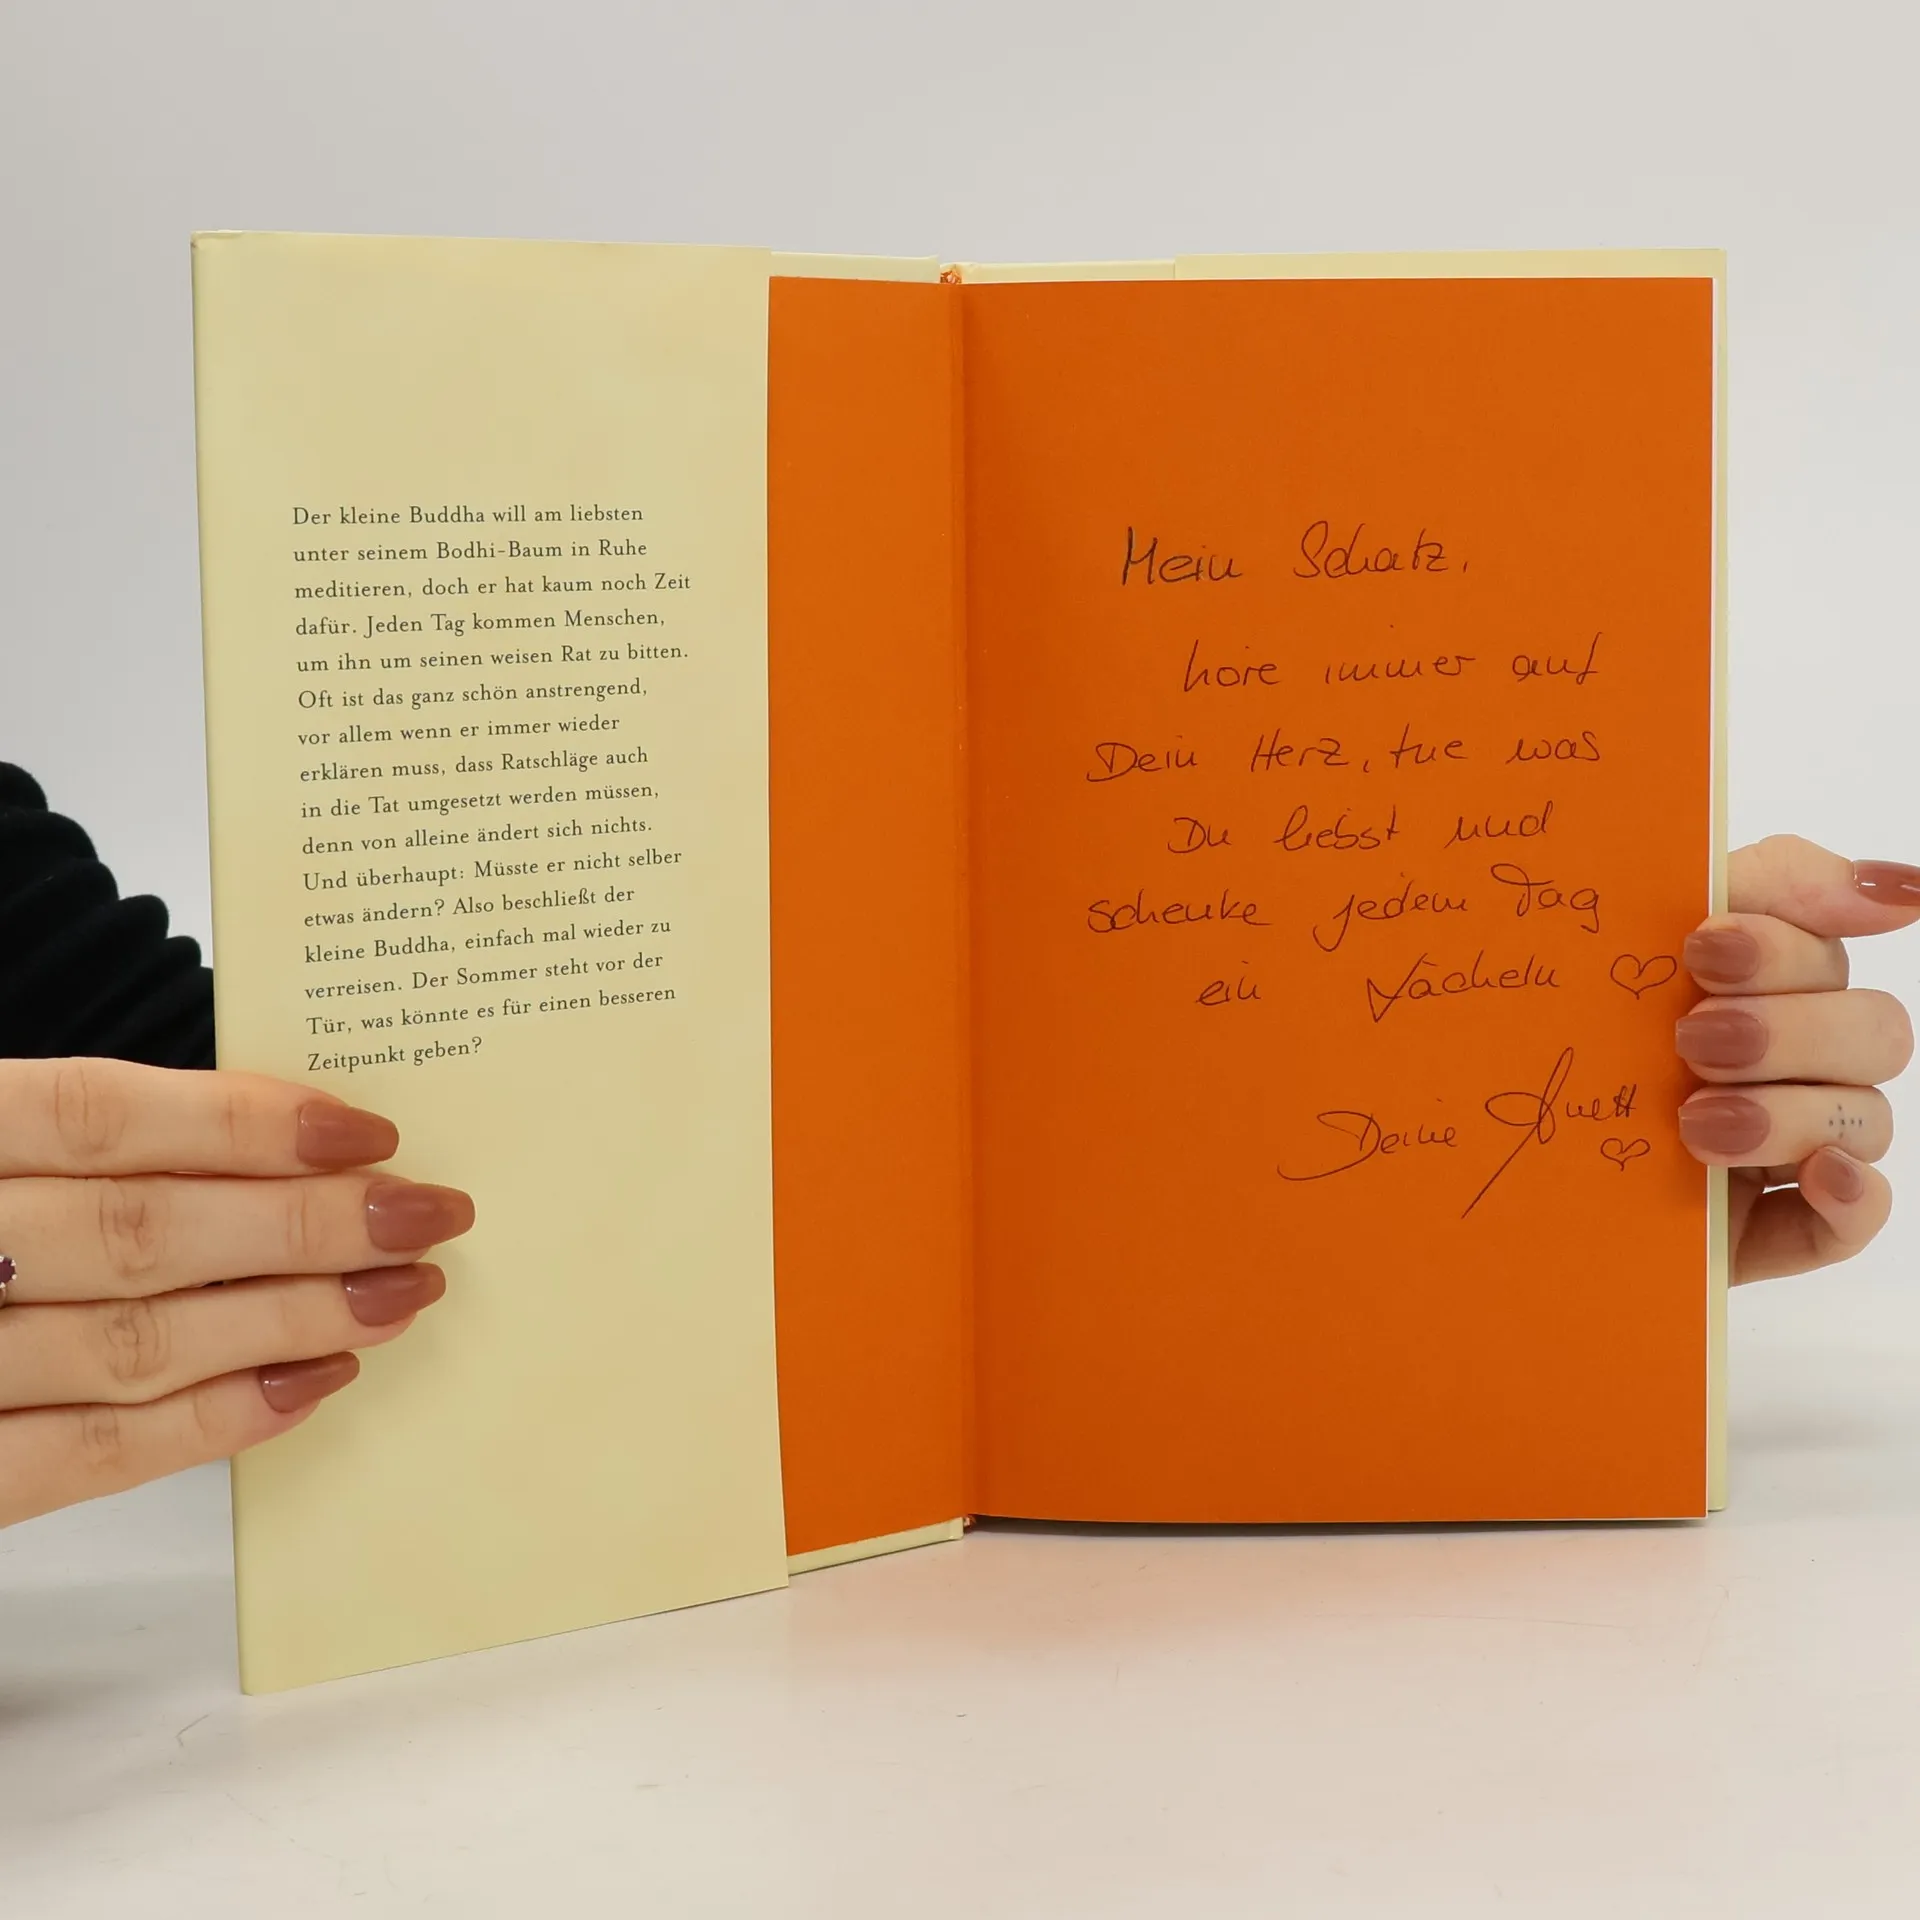 Der kleine Buddha will am liebsten
unter seinem Bodhi-Baum in Ruhe
meditieren, doch er hat kaum noch Zeit
dafür. Jeden Tag kommen Menschen,
um ihn um seinen weisen Rat zu bitten.
Oft ist das ganz schön anstrengend,
vor allem wenn er immer wieder
erklären muss, dass Ratschläge auch
in die Tat umgesetzt werden müssen,
denn von alleine ändert sich nichts.
Und überhaupt: Müsste er nicht selber
etwas ändern? Also beschließt der
kleine Buddha, einfach mal wieder zu
verreisen. Der Sommer steht vor der
Tür, was könnte es für einen besseren
Zeitpunkt geben?
Mein Schatz,
höre immer auf
Dein Herz, tue was
Du liebst und
schenke jedem Tag
ein Lächeln ♡
Deine Anett
♡